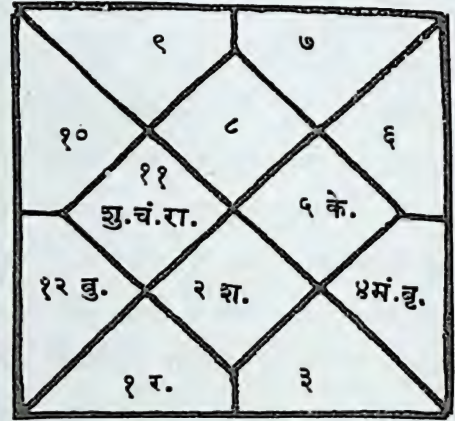 ९
७
१०
८
६
११
शु.चं.रा.
५ के.
१२ बु.
२ श.
४मं.बृ.
१ र.
३